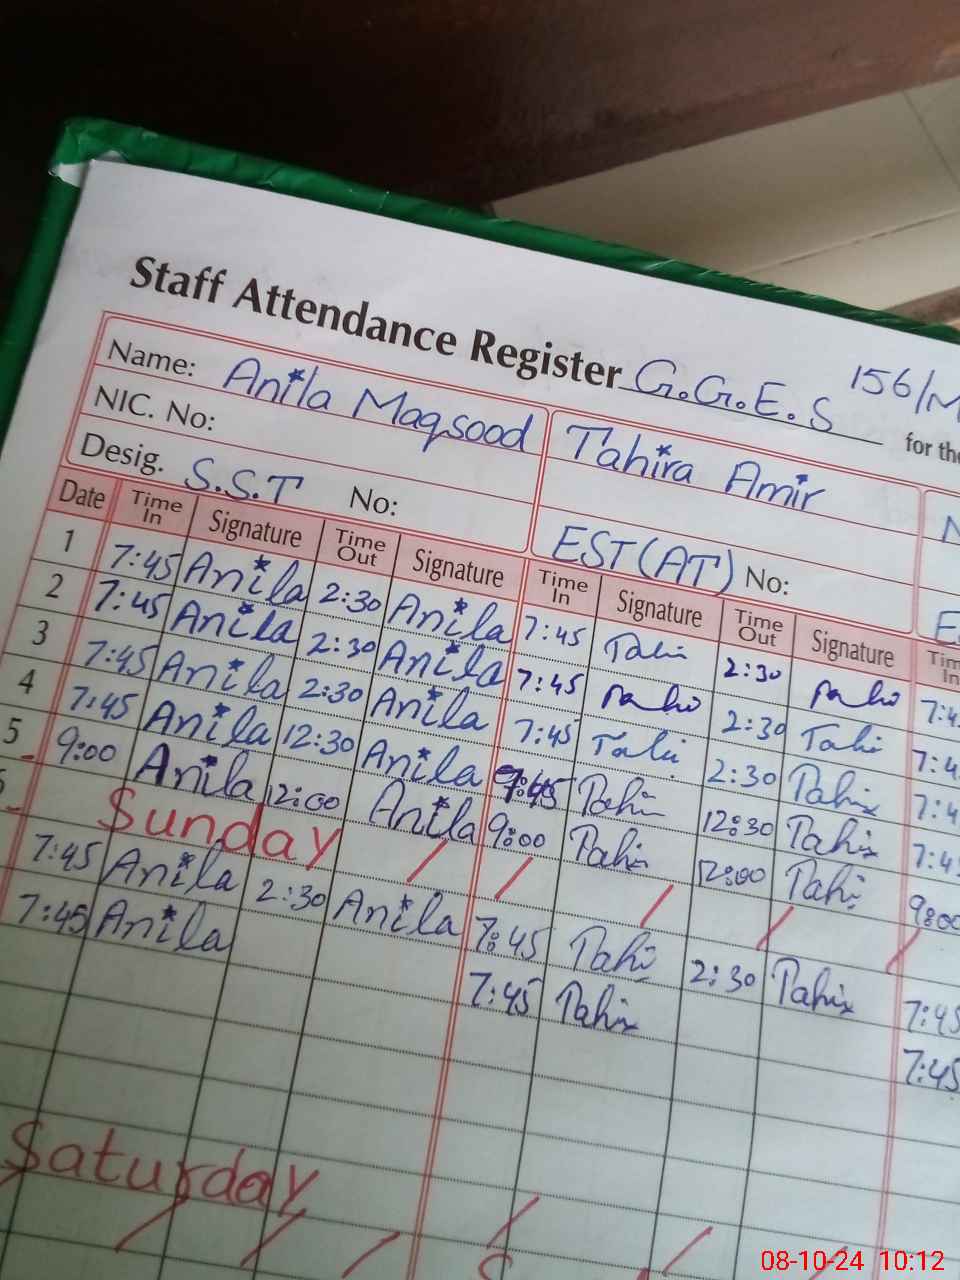 Staff Attendance Register G.G.E.S 156/M
for the
Name: Anila Maqsood Tahira Amir
NIC. No:
Desig. S.S.T No: EST (AT) No:
Date Time In Signature Time Out Signature Time In Signature Time Out Signature Time In
1 7:45 Anila 2:30 Anila 7:45 Tahi 2:30 Tahi 7:4
2 7:45 Anila 2:30 Anila 7:45 Tahi 2:30 Tahi 7:4
3 7:45 Anila 2:30 Anila 7:45 Tahi 2:30 Tahi 7:4
4 7:45 Anila 12:30 Anila 7:45 Tahi 12:30 Tahi 7:45
5 9:00 Anila 12:00 Anila 9:00 Tahi 12:00 Tahi 9:00
Sunday
7:45 Anila 2:30 Anila 7:45 Tahi 2:30 Tahi 7:45
7:45 Anila 7:45 Tahi 7:45
Saturday
08-10-24 10:12